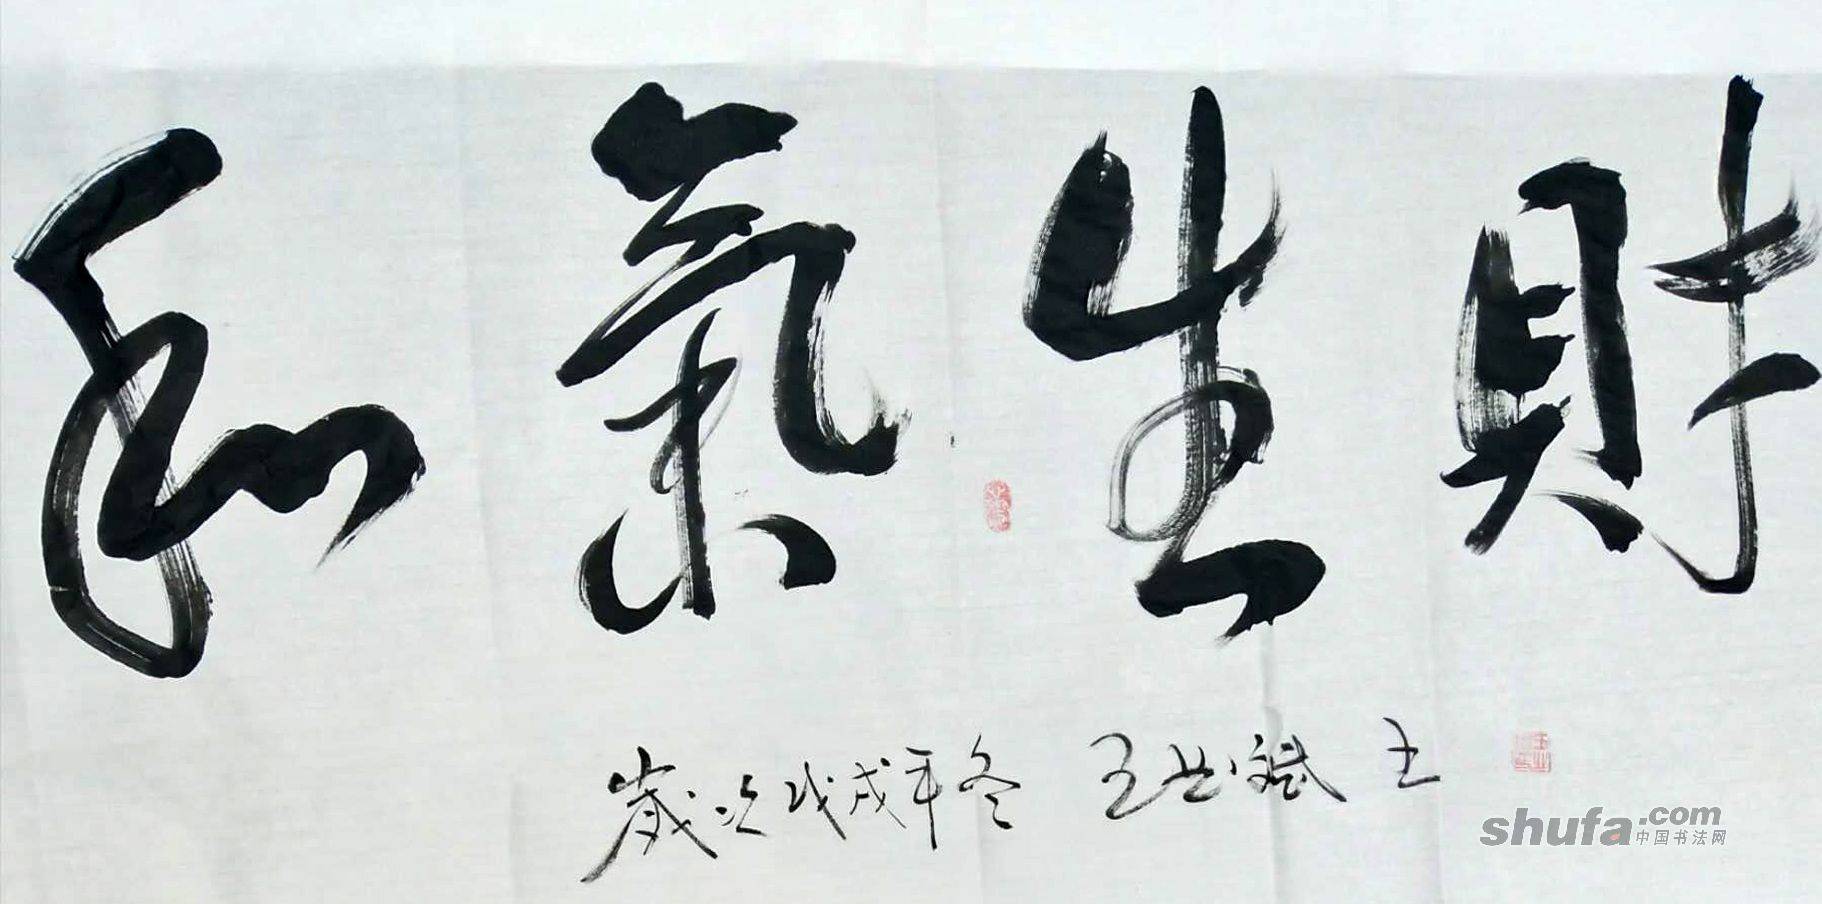 和氣生財
歲次戊戌年冬 王世斌 书
shufa.com
中国书法网